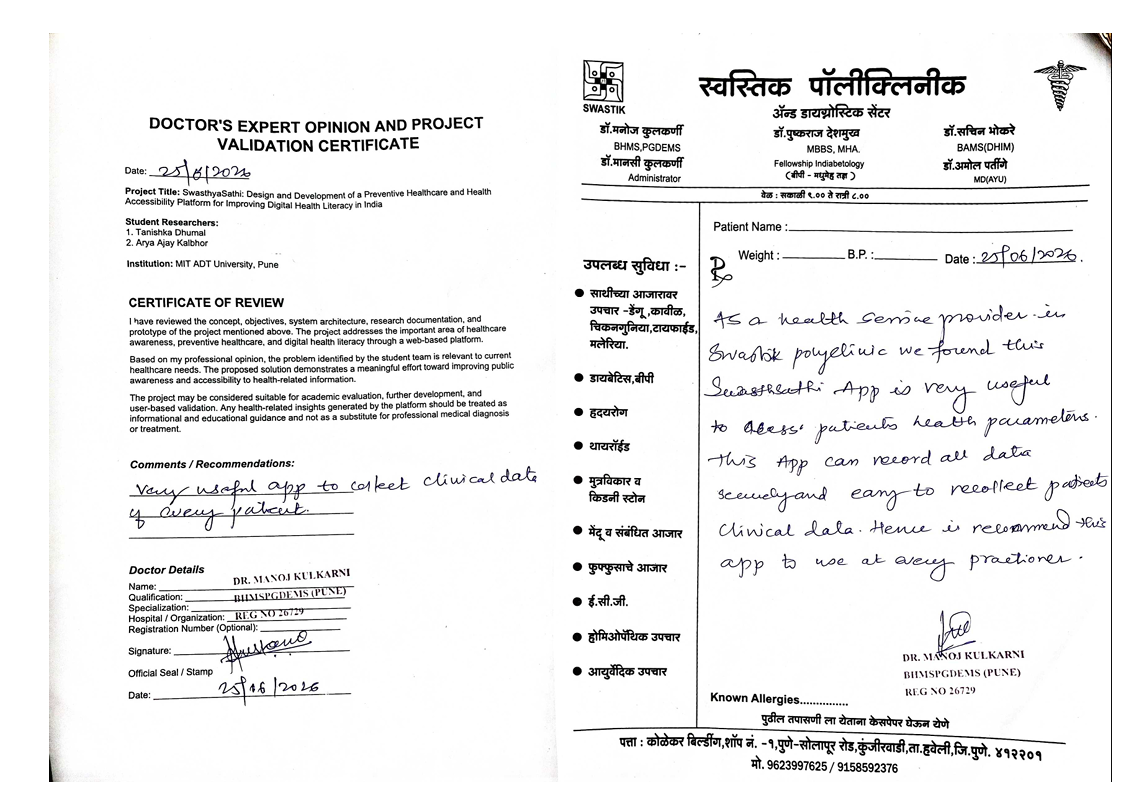 DOCTOR'S EXPERT OPINION AND PROJECT
VALIDATION CERTIFICATE
Date: 25/06/2026
Project Title: SwasthyaSathi: Design and Development of a Preventive Healthcare and Health
Accessibility Platform for Improving Digital Health Literacy in India
Student Researchers:
1. Tanishka Dhumal
2. Arya Ajay Kalbhor
Institution: MIT ADT University, Pune
CERTIFICATE OF REVIEW
I have reviewed the concept, objectives, system architecture, research documentation, and
prototype of the project mentioned above. The project addresses the important area of healthcare
awareness, preventive healthcare, and digital health literacy through a web-based platform.
Based on my professional opinion, the problem identified by the student team is relevant to current
healthcare needs. The proposed solution demonstrates a meaningful effort toward improving public
awareness and accessibility to health-related information.
The project may be considered suitable for academic evaluation, further development, and
user-based validation. Any health-related insights generated by the platform should be treated as
informational and educational guidance and not as a substitute for professional medical diagnosis
or treatment.
Comments / Recommendations:
Very useful app to collect clinical data
of every patient.
Doctor Details
Name: DR. MANOJ KULKARNI
Qualification: BHMSPGDEMS (PUNE)
Specialization:
Hospital / Organization: REG NO 26729
Registration Number (Optional):
Signature:
Official Seal / Stamp
Date: 25/06/2026
SWASTIK
स्वस्तिक पॉलीक्लिनीक
ॲन्ड डायग्नोस्टिक सेंटर
डॉ.मनोज कुलकर्णी
BHMS,PGDEMS
डॉ.मानसी कुलकर्णी
Administrator
डॉ.पुष्कराज देशमुख
MBBS, MHA.
Fellowship Indiabetology
(बीपी - मधुमेह तज्ञ )
डॉ.सचिन भोकरे
BAMS(DHIM)
डॉ.अमोल पर्तीगे
MD(AYU)
वेळ : सकाळी ९.०० ते रात्री ८.००
Patient Name :
Weight : B.P.: Date : 25/06/2026.
उपलब्ध सुविधा :-
साथीच्या आजारावर
उपचार -डेंगू ,कावीळ,
चिकनगुनिया,टायफाईड,
मलेरिया.
डायबेटिस,बीपी
हृदयरोग
थायरॉईड
मुत्रविकार व
किडनी स्टोन
मेंदू व संबंधित आजार
फुफ्फुसाचे आजार
ई.सी.जी.
होमिओपॅथिक उपचार
आयुर्वेदिक उपचार
As a health service provider in
Swastik polyclinic we found this
Swasthsathi App is very useful
to patients health parameters.
This App can record all data
and easy to recollect patients
Clinical data. Hence is recommend this
app to use at every practioner.
DR. MANOJ KULKARNI
BHMSPGDEMS (PUNE)
REG NO 26729
Known Allergies..............
पुढील तपासणी ला येताना केसपेपर घेऊन येणे
पत्ता : कोळेकर बिल्डींग,शॉप नं. -१,पुणे-सोलापूर रोड,कुंजीरवाडी,ता.हवेली,जि.पुणे. ४१२२०१
मो. 9623997625 / 9158592376